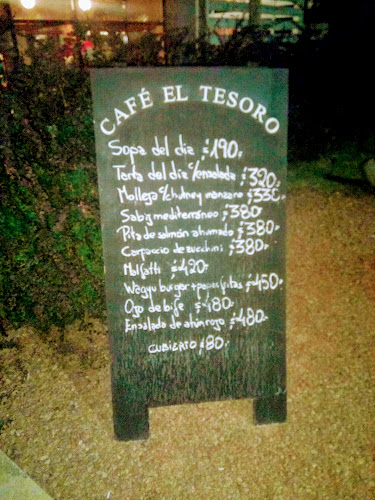 CAFÉ EL TESORO
Sopa del dia $190.
Tarta del dia c/ensalada $320.
Molleja c/chutney manzana $330.
Sabiz mediterráneo $380
Pita de salmón ahumado $380.
Carpaccio de zucchini $380.
Malfatti $420.
Wagyu burger + papas fritas $450.
Ojo de bife $480.
Ensalada de atún rojo $480.
CUBIERTO $80.